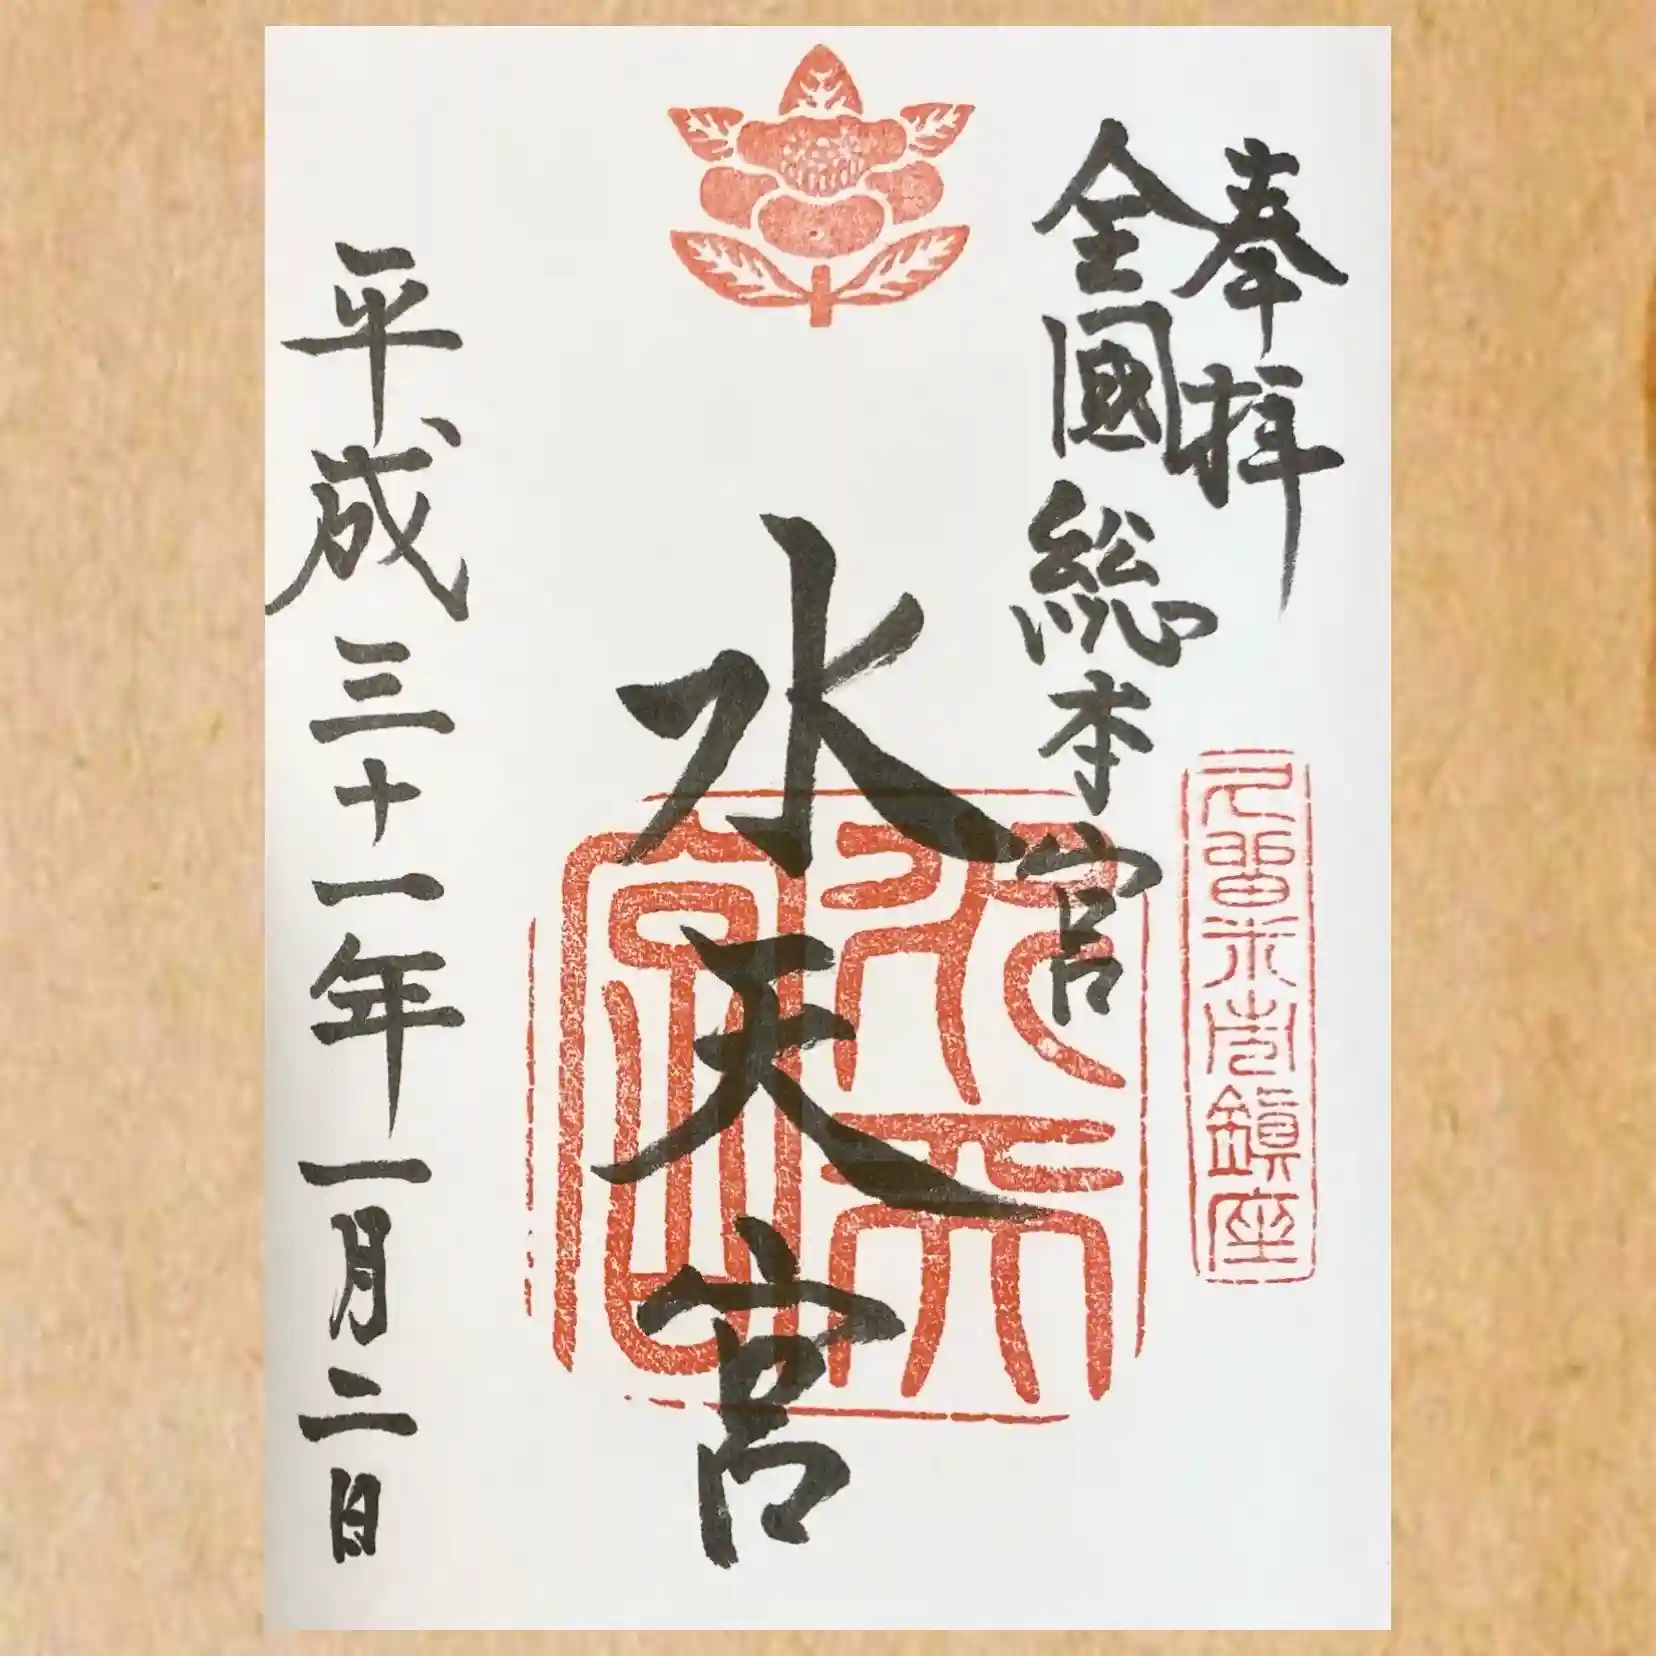 奉拝
全國総本宮
水天宮
平成三十一年一月二日
久留米市鎮座
水天宮印